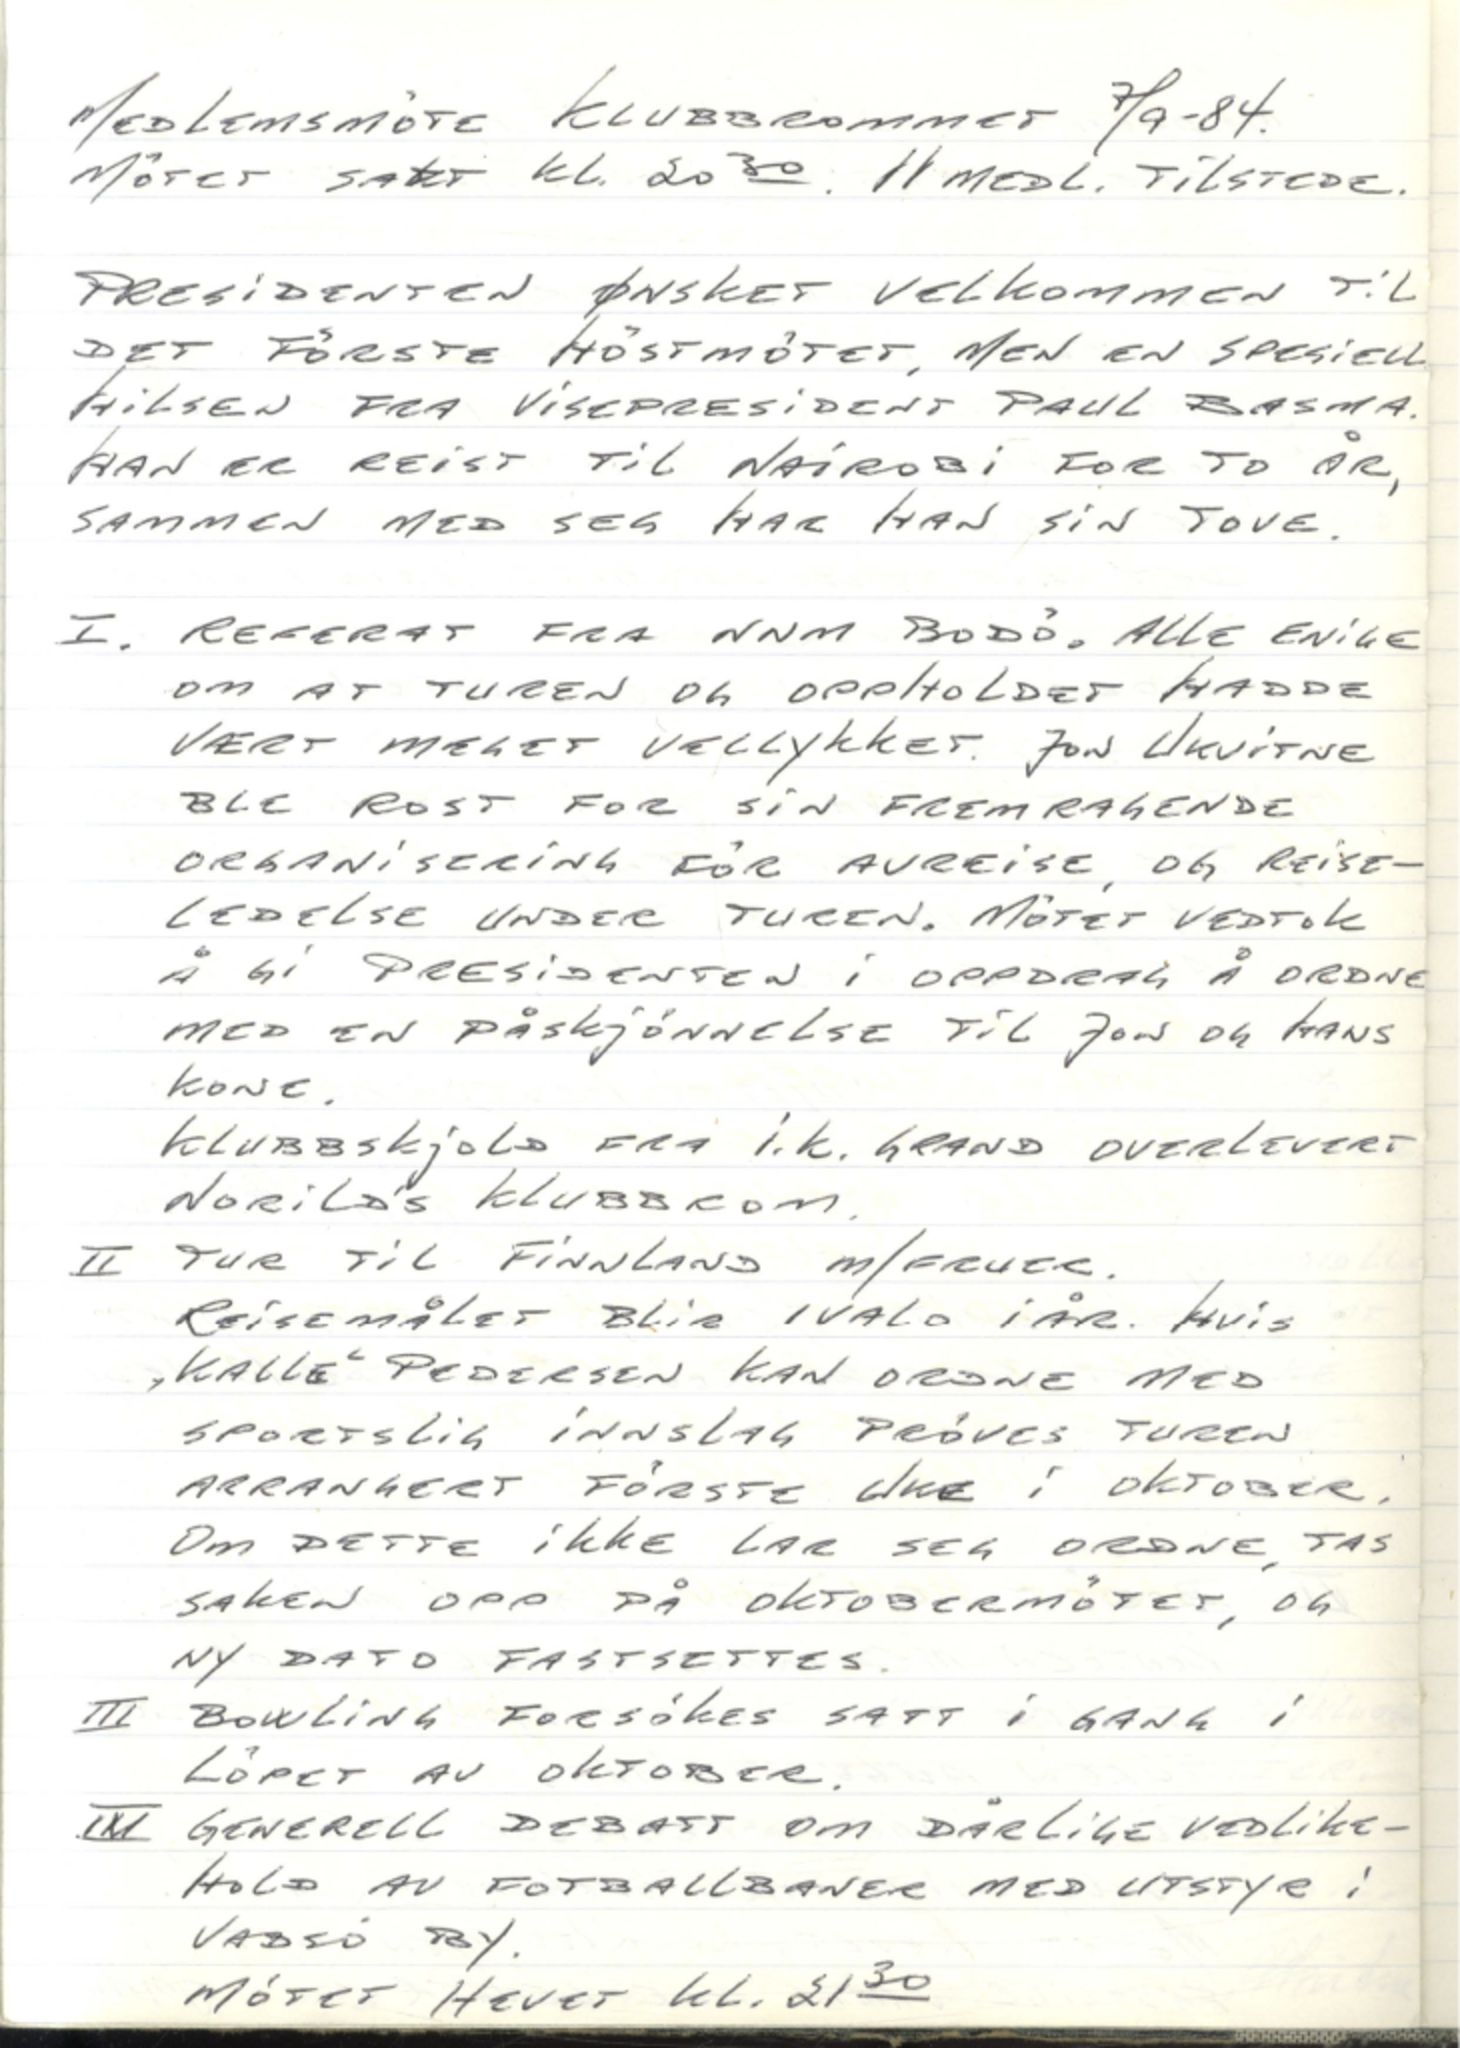 MEDLEMSMÖTE KLUBBROMMET 7/9-84.
MÖTET SATT KL. 20 30. 11 MEDL. TILSTEDE.
PRESIDENTEN ØNSKET VELKOMMEN TIL
DET FÖRSTE HÖSTMÖTET, MEN EN SPESIELL
HILSEN FRA VISEPRESIDENT PAUL BASMA.
HAN ER REIST TIL NAIROBI FOR TO ÅR,
SAMMEN MED SEG HAR HAN SIN TOVE.
I. REFERAT FRA NNM BODÖ. ALLE ENIGE
OM AT TUREN OG OPPHOLDET HADDE
VÆRT MEGET VELLYKKET. JON UKVITNE
BLE ROST FOR SIN FREMRAGENDE
ORGANISERING FÖR AVREISE, OG REISE-
LEDELSE UNDER TUREN. MÖTET VEDTOK
Å GI PRESIDENTEN I OPPDRAG Å ORDNE
MED EN PÅSKJÖNNELSE TIL JON OG HANS
KONE.
KLUBBSKJOLD FRA I.K. GRAND OVERLEVERT
NORILD'S KLUBBROM.
II TUR TIL FINNLAND M/FRUER.
REISEMÅLET BLIR IVALO I ÅR. HVIS
"KALLE" PEDERSEN KAN ORDNE MED
SPORTSLIG INNSLAG PRÖVES TUREN
ARRANGERT FÖRSTE UKE I OKTOBER.
OM DETTE IKKE LAR SEG ORDNE, TAS
SAKEN OPP PÅ OKTOBERMÖTET, OG
NY DATO FASTSETTES.
III BOWLING FORSÖKES SATT I GANG I
LÖPET AV OKTOBER.
IV GENERELL DEBATT OM DÅRLIGE VEDLIKE-
HOLD AV FOTBALLBANER MED UTSTYR I
VADSÖ BY.
MÖTET HEVET KL. 21 30